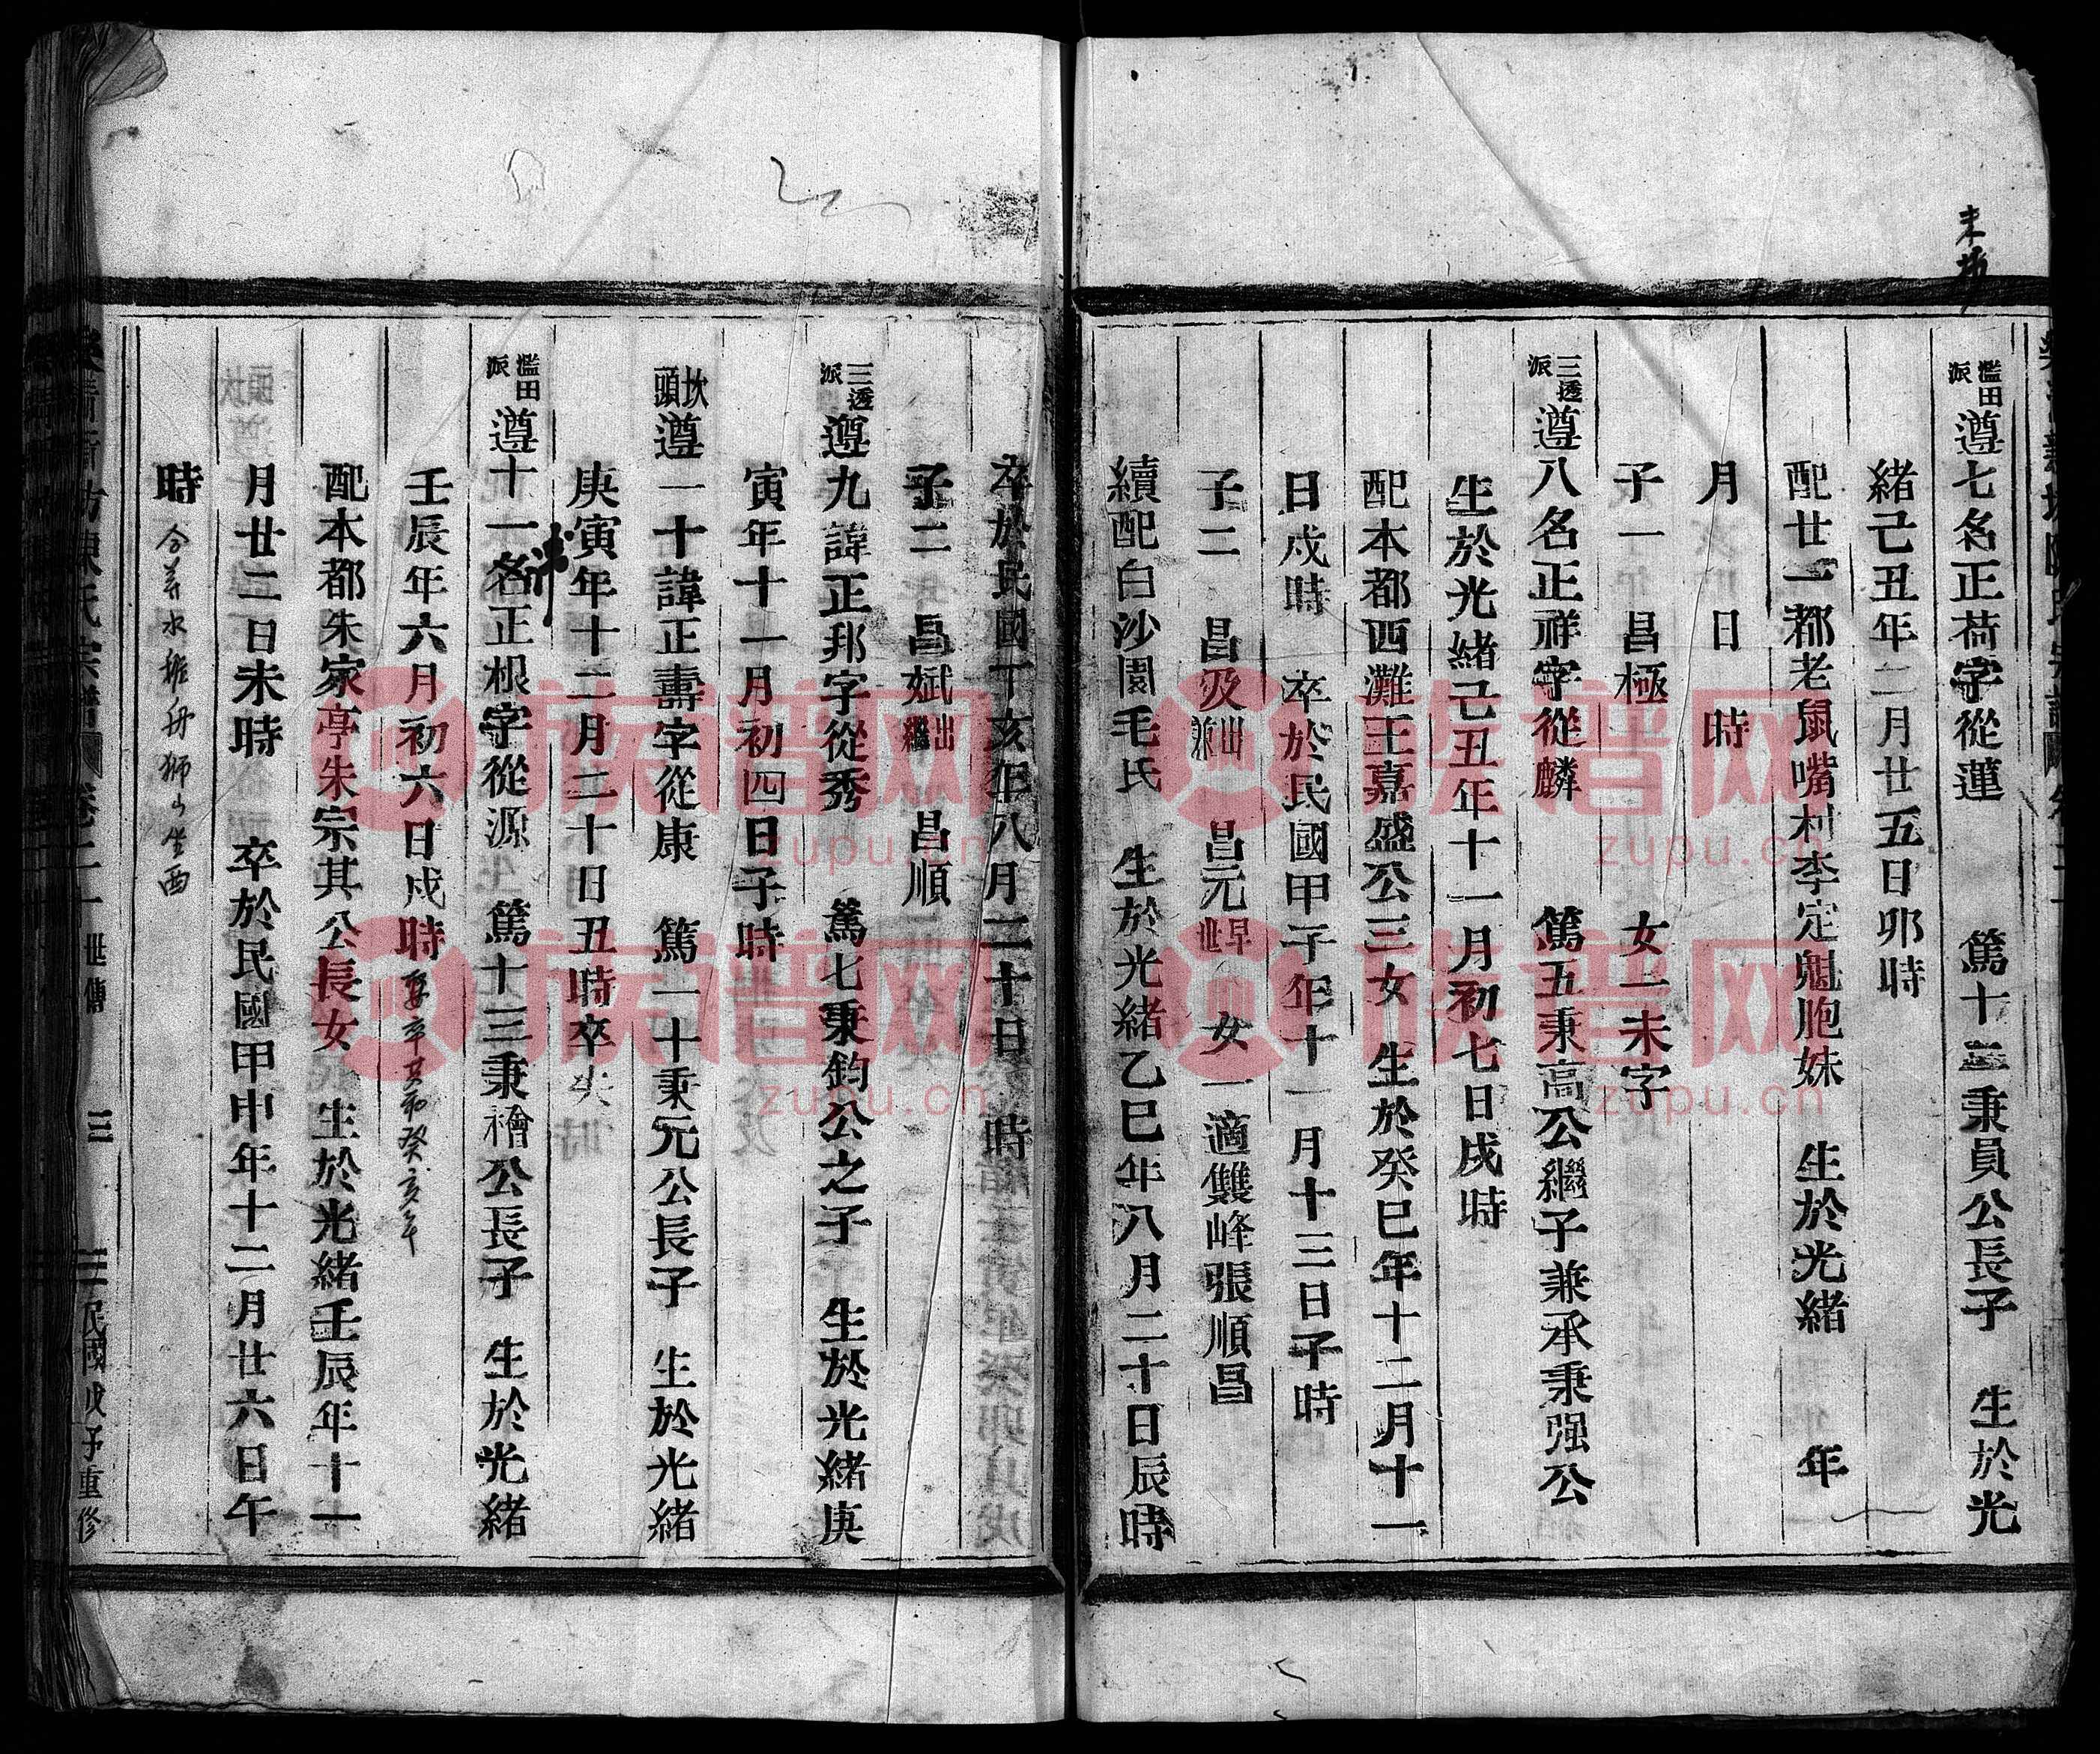 未抄
濫田派 遵七名正荷字從蓮 篤十三秉員公長子 生於光
緒己丑年二月廿五日卯時
配廿一都老鼠嘴村李定魁胞妹 生於光緒 年
月 日 時
子一 昌極 女一未字
三透派 遵八名正祥字從麟 篤五秉高公繼子兼承秉强公
生於光緒己丑年十一月初七日戌時
配本都西灘王嘉盛公三女 生於癸巳年十二月十一
日戌時 卒於民國甲子年十一月十三日子時
子二 昌汲出兼 昌元早世 女一適雙峰張順昌
續配白沙園毛氏 生於光緒乙巳年八月二十日辰時
卒於民國丁亥年八月二十日 時
子二 昌斌出繼 昌順
三透派 遵九諱正邦字從秀 篤七秉鈞公之子 生於光緒庚
寅年十一月初四日子時
坎頭 遵一十諱正壽字從康 篤一十秉元公長子 生於光緒
庚寅年十二月二十日丑時卒失
濫田派 遵十一名正根字從源 篤十三秉襘公長子 生於光緒
壬辰年六月初六日戌時 癸亥年
配本都朱家亭朱宗其公長女 生於光緒壬辰年十一
月廿二日未時 卒於民國甲申年十二月廿六日午
時 合葬水 獅山坐西
陳氏宗譜 卷二 世傳 三 民國戊子重修
族谱网
zupu.cn
族谱网
zupu.cn
族谱网
zupu.cn
族谱网
zupu.cn